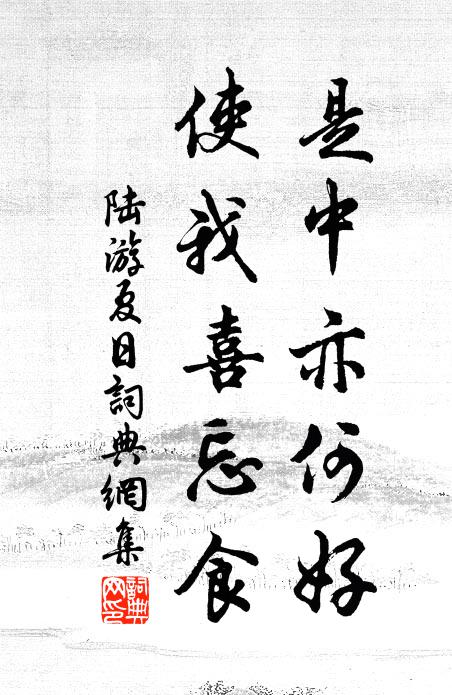 是中亦何好
使我喜忘食
陆游夏日詞典網集
詞典网印